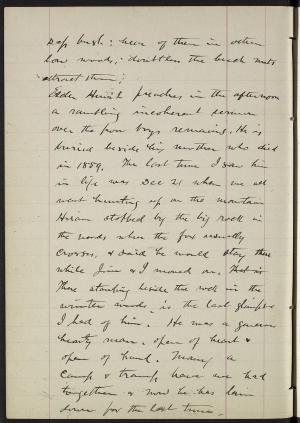 bush; hear of them in other
low woods; doubtless the beech nuts
attract them;
Elder Hewitt preaches in the afternoon
a rambling incoherent sermon
over the poor boys remains. He is
buried beside his mother who died
in 1859. The last time I saw him
in life was Dec 21 when we all
went hunting up on the mountain
Hiram stopped by the big rock in
the woods where the fox usually
crosses, & said he would stay there
while Jim & I moved on. That is
There standing beside the rock in the
winter woods, is the last glimpse
I had of him. He was a generous
hearty man, open of heart &
open of hand. Many a
camp & tramp have we had
together & now he has lain
down for the last time.